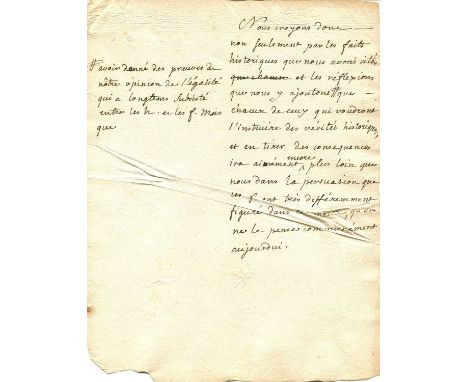 Nous croyons donc —
non seulement par les faits
historiques que nous avons cités
que chacun et les réflexions
que nous y ajoutons # que —
chacun de ceux qui voudront
s'instruire des vérités historiques
et en tirer des consequences
ira aisément encore plus loin que
nous dans la persuasion que
les f. ont très différemment
figuré dans ce monde, qu'on
ne le pense communément
aujourdui.
# avoir donné des preuves de
nôtre opinion de l'égalité
qui a longtems subsisté
entre les h. et les f. Mais
que